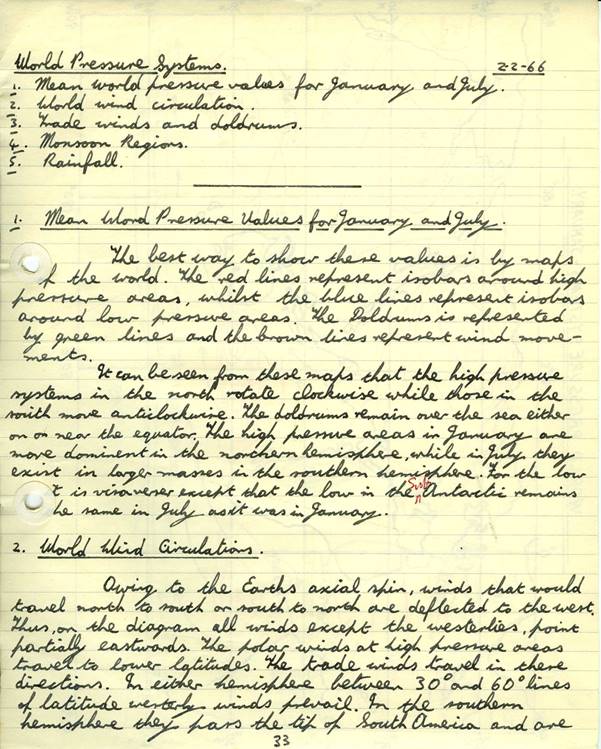 World Pressure Systems. 2-2-66
1. Mean world pressure values for January and July.
2. World wind circulation.
3. Trade winds and doldrums.
4. Monsoon Regions.
5. Rainfall.
1. Mean Word Pressure Values for January and July.
The best way to show these values is by maps
f the world. The red lines represent isobars around high
pressure areas, whilst the blue lines represent isobars
around low pressure areas. The Doldrums is represented
by green lines and the brown lines represent wind move-
ments.
It can be seen from these maps that the high pressure
systems in the north rotate clockwise while those in the
south move anticlockwise. The doldrums remain over the sea either
on or near the equator. The high pressure areas in January are
more dominent in the northern hemisphere, while in July they
exist in larger masses in the southern hemisphere. For the low
t is visaverser except that the low in the Sub Antarctic remains
he same in July as it was in January.
2. World Wind Circulations.
Owing to the Earths axial spin, winds that would
travel north to south or south to north are deflected to the west.
Thus, on the diagram all winds except the westerlies, point
partially eastwards. The polar winds at high pressure areas
travel to lower latitudes. The trade winds travel in these
directions. In either hemisphere between 30° and 60° lines
of latitude westerly winds prevail. In the southern
hemisphere they pass the tip of South America and are
33